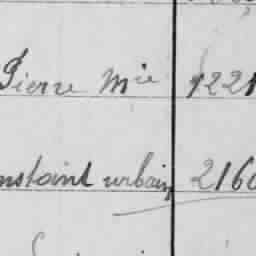 Pierre Mie 1221
nstaint urbain 2160